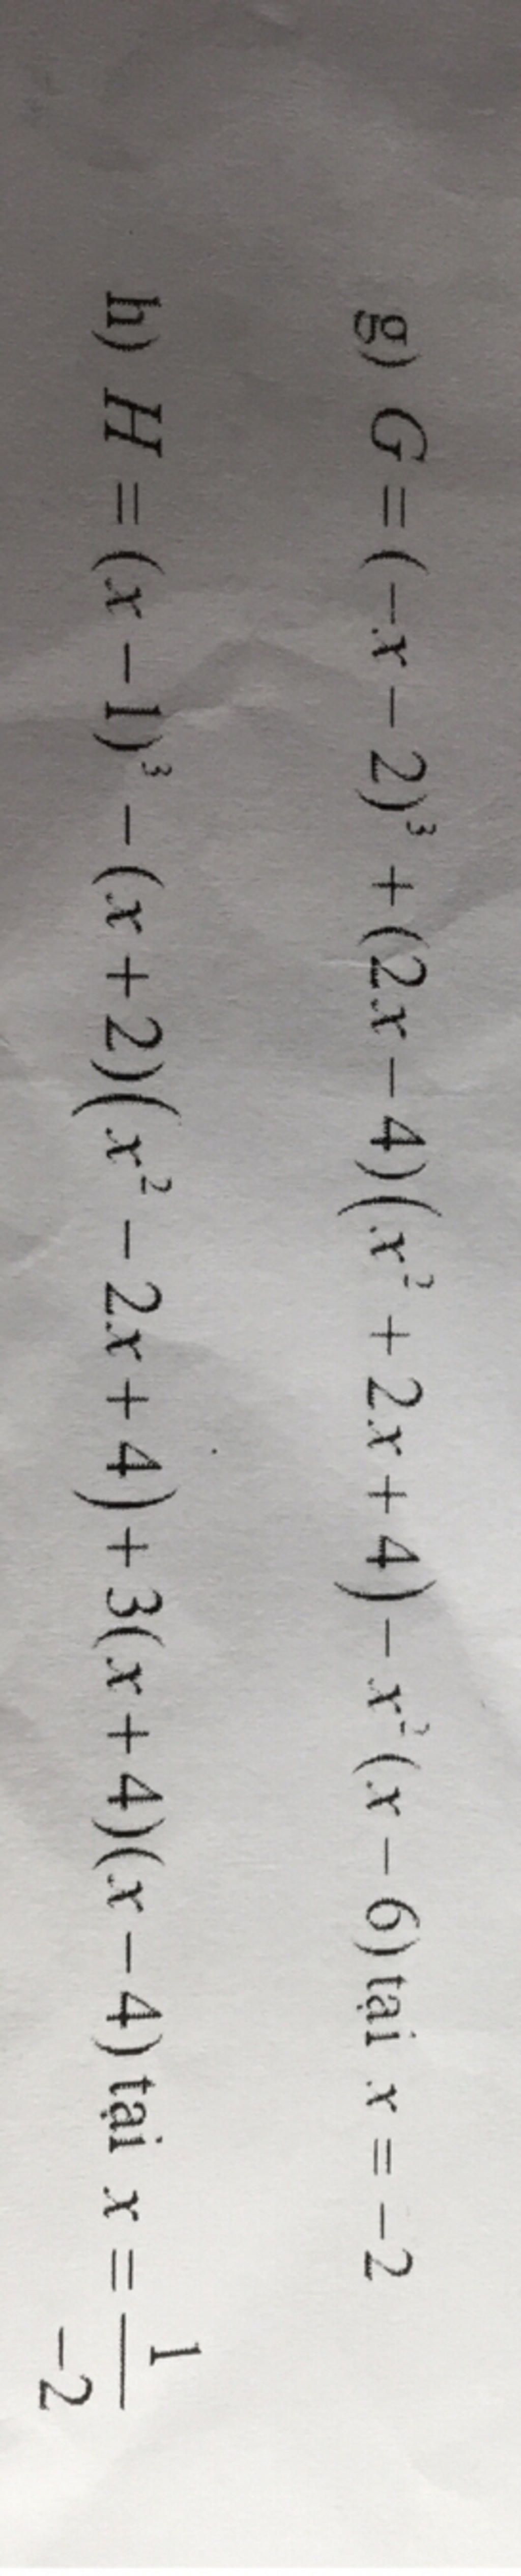 g) G = (-x - 2)³ + (2x - 4)(x² + 2x + 4) - x²(x - 6) tại x = -2
h) H = (x - 1)³ - (x + 2)(x² - 2x + 4) + 3(x + 4)(x - 4) tại x = 1/-2